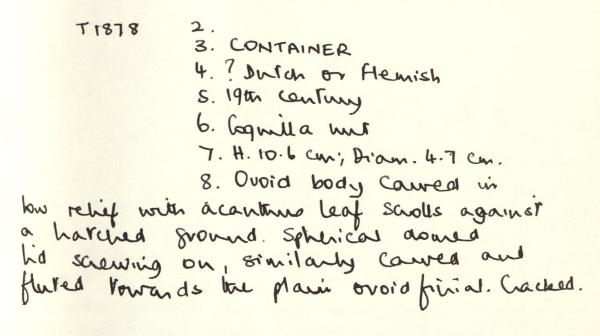 T1878 2.
3. CONTAINER
4. ? Dutch or Flemish
5. 19th century
6. Coquilla nut
7. H. 10.6 cm; Diam. 4.7 cm.
8. Ovoid body carved in
low relief with acanthus leaf scrolls against
a hatched ground. Spherical domed
lid screwing on, similarly carved and
fluted towards the plain ovoid finial. Cracked.